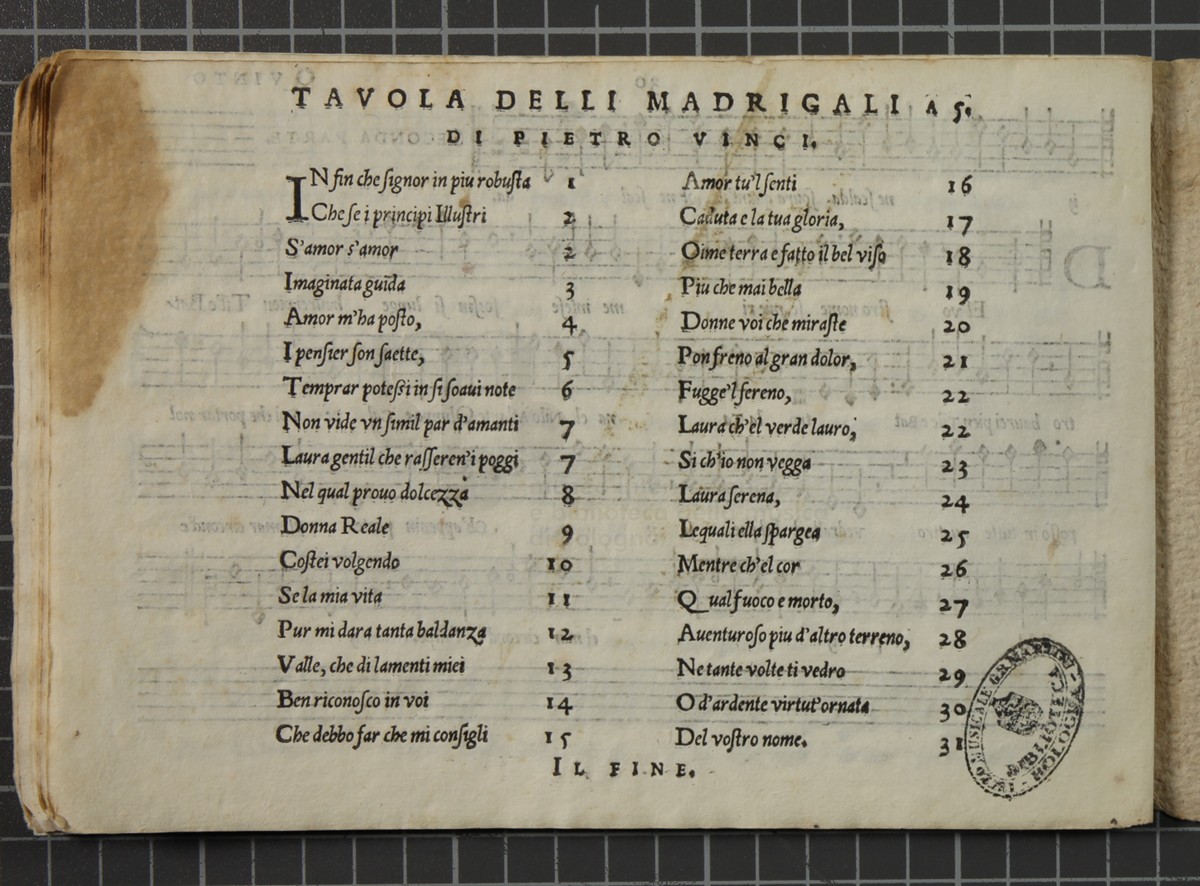 TAVOLA DELLI MADRIGALI A 5.
DI PIETRO VINCI.
IN fin che ſignor in piu robuſta 1
Che ſe i principi Illuſtri 2
S'amor s'amor 2
Imaginata guida 3
Amor m'ha poſto, 4
I penſier ſon ſaette, 5
Temprar poteſsi in ſi ſoaui note 6
Non vide vn ſimil par d'amanti 7
Laura gentil che raſſeren'i poggi 7
Nel qual prouo dolcezza 8
Donna Reale 9
Coſtei volgendo 10
Se la mia vita 11
Pur mi dara tanta baldanza 12
Valle, che di lamenti miei 13
Ben riconoſco in voi 14
Che debbo far che mi conſigli 15
Amor tu'l ſenti 16
Caduta e la tua gloria, 17
Oime terra e fatto il bel viſo 18
Piu che mai bella 19
Donne voi che miraſte 20
Pon freno al gran dolor, 21
Fugge'l ſereno, 22
Laura ch'el verde lauro, 22
Si ch'io non vegga 23
Laura ſerena, 24
Lequali ella ſpargea 25
Mentre ch'el cor 26
Qual fuoco e morto, 27
Auenturoſo piu d'altro terreno, 28
Ne tante volte ti vedro 29
O d'ardente virtut'ornata 30
Del voſtro nome. 31
IL FINE.
MUSICALE G.B. MARTINI
BIBLIOTECA
BOLOGNA